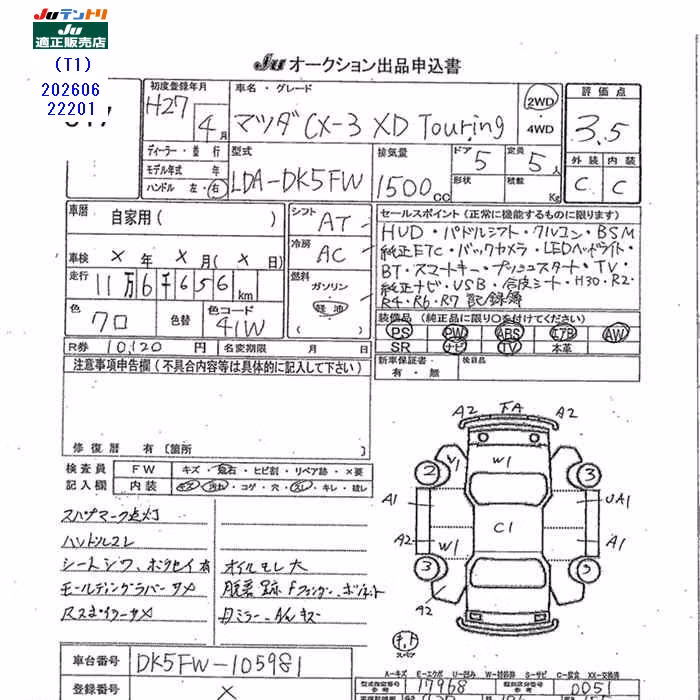 Juテントリ
Ju
適正販売店
(T1)
202606
22201
Ju オークション出品申込書
初度登録年月
H27 4月
車名・グレード
マツダ CX-3 XD Touring
2WD
・
4WD
評価点
3.5
外装 内装
C C
ディーラー・並行
モデル年式 年
ハンドル 左・右
型式
LDA-DK5FW
排気量
1500cc
ドア 5
形状
定員 5人
積載 Kg
車歴 自家用( )
車検 × 年 × 月( × 日)
走行 11万6千656km
色 クロ 色替 色コード 41W
シフト AT
冷房 AC
燃料 ガソリン
軽油
R券 10,120 円 名変期限 月 日
セールスポイント(正常に機能するものに限ります)
HUD・パドルシフト・クルコン・BSM
純正ETC・バックカメラ・LEDヘッドライト・
BT・スマートキー・プッシュスタート・TV・
純正ナビ・USB・合皮シート・H30・R2・
R4・R6・R7 記録簿
装備品(純正品に限り○を付けてください)
PS PW ABS エアB AW
SR ナビ TV 本革
新車保証書 有・無
後日品
注意事項申告欄(不具合内容等は具体的に記入して下さい)
修復歴 有〔箇所 〕
検査員 FW キズ・飛石・ヒビ割・リペア跡・×要
記入欄 内装 キズ・汚れ・コゲ・穴・スレ・キレ・破レ
ハンドルスレ
オイルモレ大
A2 FA A2
2 Y1 W1 3
A1 UA1
C1
A2 W1 A1
3
A2
車台番号 DK5FW-105981
登録番号 ×
A-キズ E-エクボ U-凹み W-補修跡 S-サビ C-腐食 XX-交換済
型式指定番号 17968 類別区分番号 0051